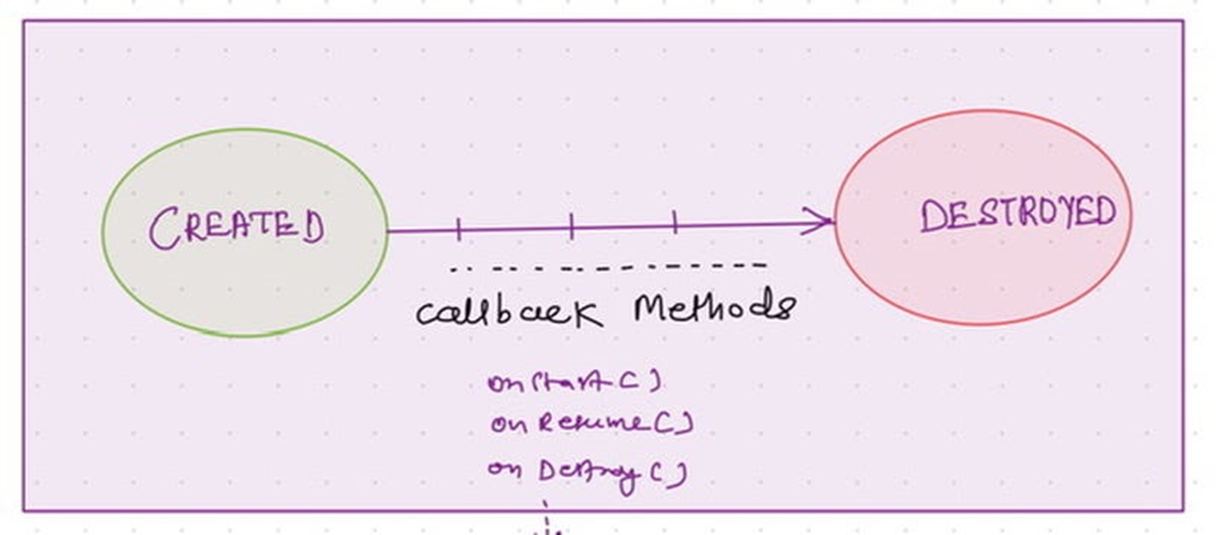 CREATED
DESTROYED
callback Methods
onStart()
on Resume()
on Destroy()